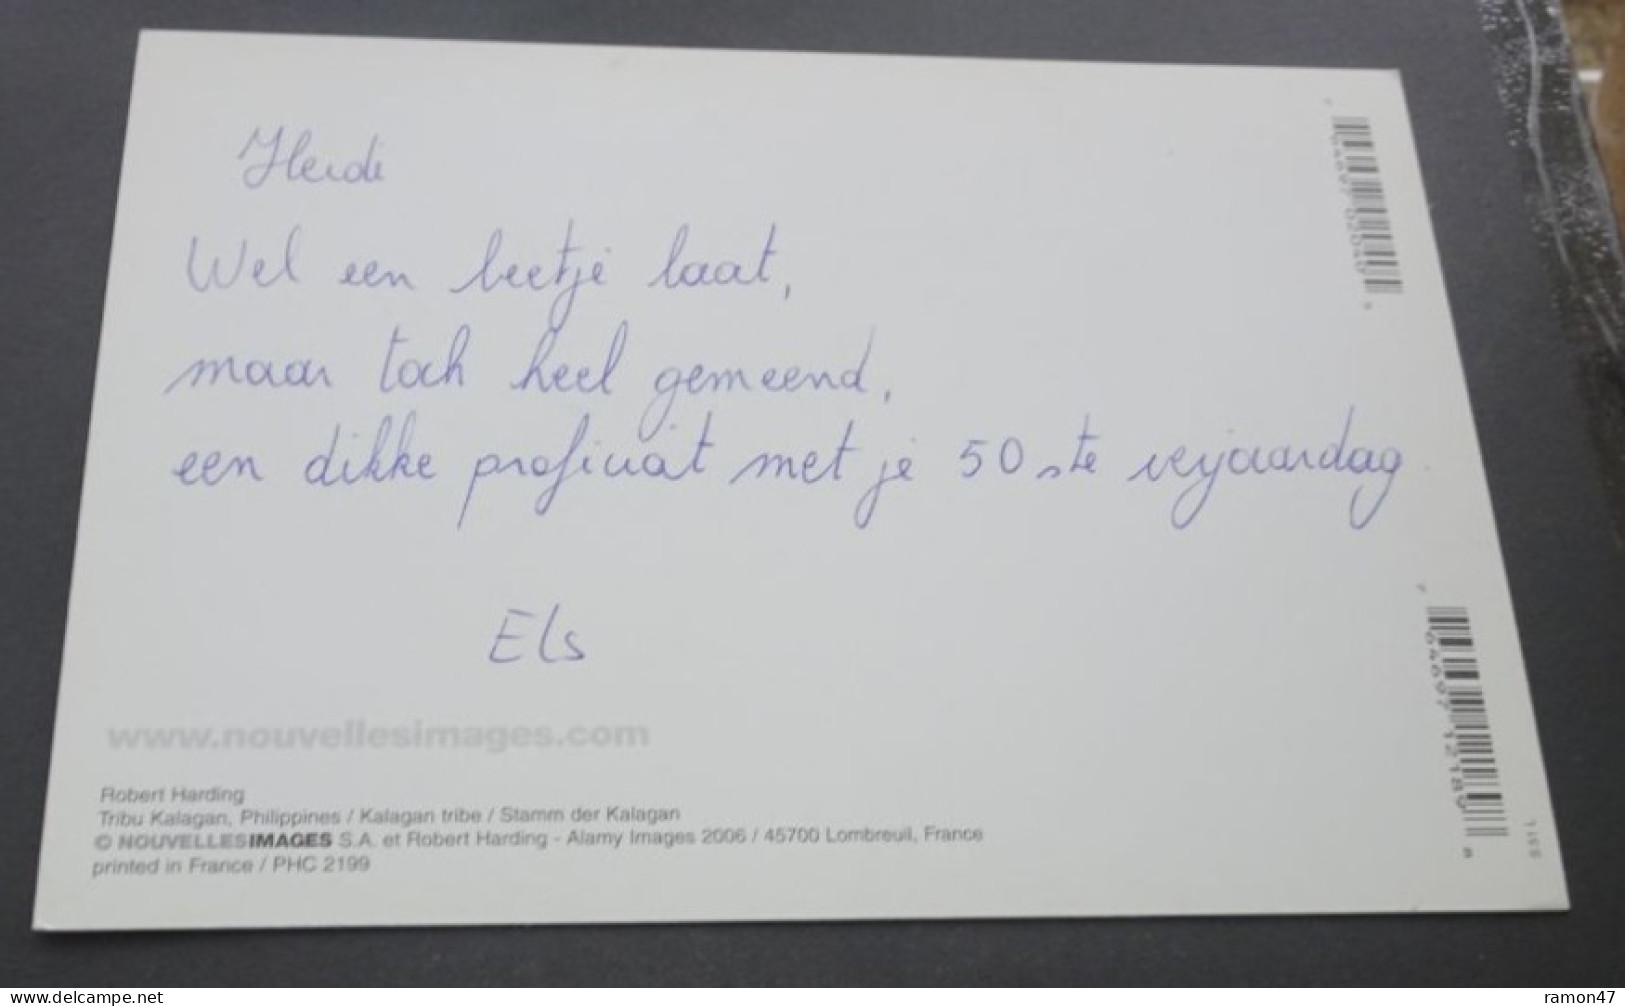 Heidi
Wel een beetje laat,
maar toch heel gemeend,
een dikke proficiat met je 50ste verjaardag
Els
www.nouvellesimages.com
Robert Harding
Tribu Kalagan, Philippines / Kalagan tribe / Stamm der Kalagan
© NOUVELLESIMAGES S.A. et Robert Harding - Alamy Images 2006 / 45700 Lombreuil, France
printed in France / PHC 2199
www.delcampe.net
ramon47